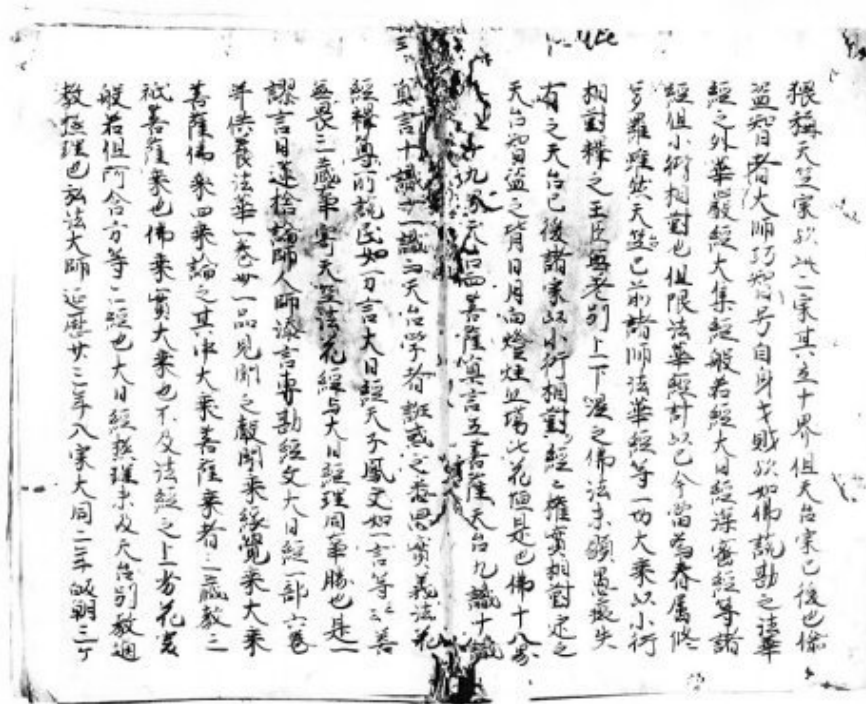 猥稱天竺家欤此二家其立十界但天台宗已後也倩
盜智者大師巧智号自身才財欤如佛説勘之法華
經之外華嚴經大集經般若經大日經深密經等諸
經但小衍相對也但限法華經計以已今當為眷属修
多羅雖然天竺已前諸師法華經等一切大乘以小衍
相對釋之王臣無老別上下混之佛法未顯愚癡失
有之天台已後諸家以小衍相對經之權實相對定之
天台智盜之皆日月向燈炷
九界天台四菩薩真言五菩薩天台九識十識
真言十識十一識而天台学者誑惑之
實義法花
經釋尊所説民如一万言大日經天子
如一言等云云善
無畏三藏事寄天竺法花經与大日經理同事勝也是一
謬言日蓮捨論師人師謬言専勘經文大日經一部六巻
并供養法華一巻卅一品見聞之聲聞乘緣覺乘大乘
菩薩佛乘四乘論之其中大乘菩薩乘者三藏教三
祇菩薩乘也佛乘實大乘也不及法經之上首花
般若但阿含方等二經也大日經
理未及天台別教通
教極理也弘法大師延曆廿三年入家大同二年
朝三ケ